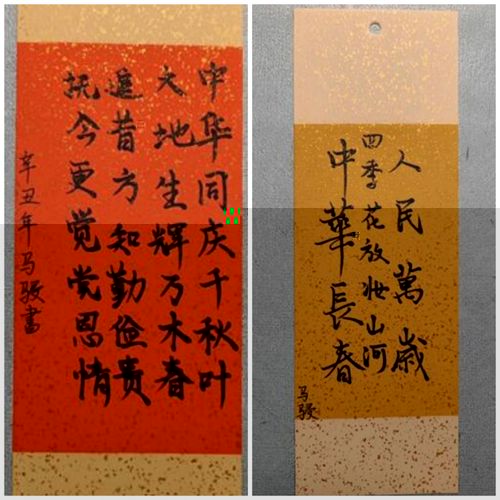 中华同庆千秋叶
大地生辉万木春
追昔方知勤俭贵
抚今更觉党恩情
辛丑年马骏书
人民萬歲
四季花放妝山河
中華長春
马骏